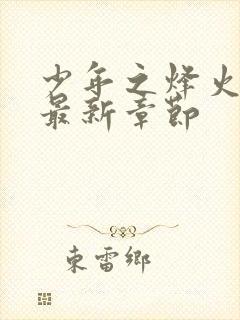 少年之烽火
最新章节
東雷鄉